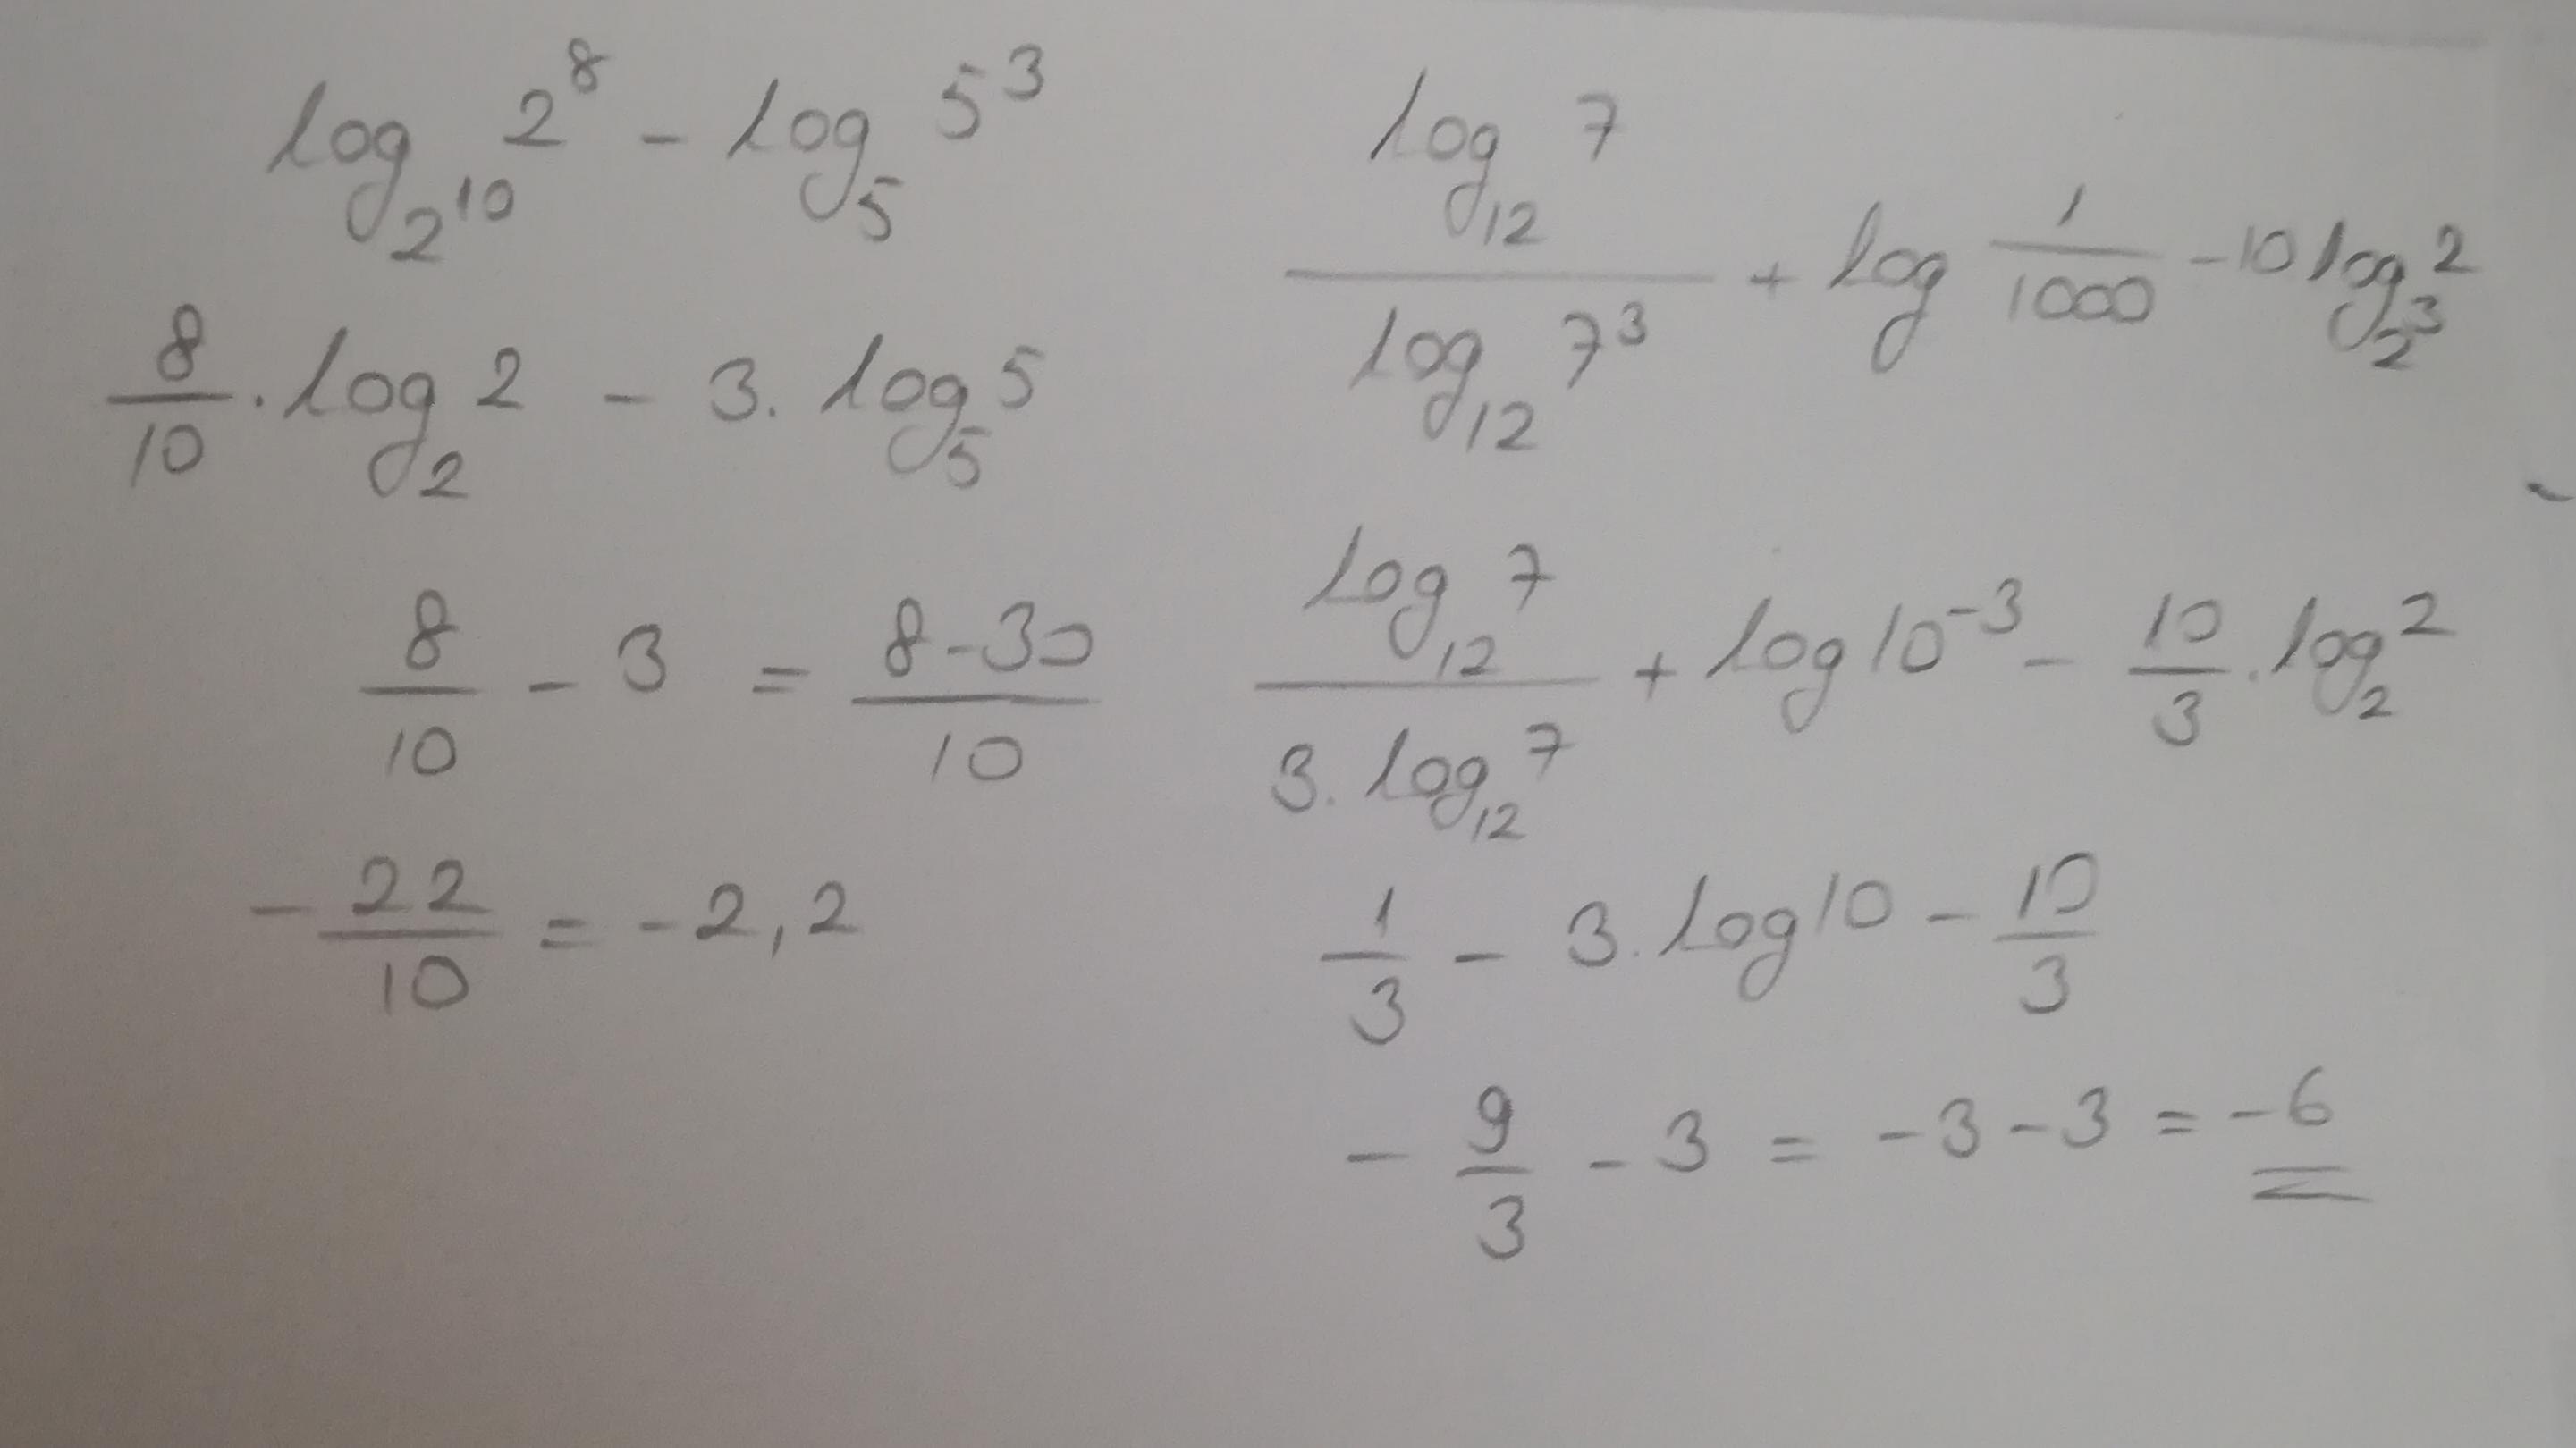 log_{2^{10}} 2^8 - log_5 5^3
8/10 . log_2 2 - 3. log_5 5
8/10 - 3 = (8-30)/10
- 22/10 = -2,2
(log_{12} 7)/(log_{12} 7^3) + log 1/1000 - 10 log_{2^3} 2
(log_{12} 7)/(3. log_{12} 7) + log 10^{-3} - 10/3 . log_2 2
1/3 - 3. log 10 - 10/3
- 9/3 - 3 = -3 - 3 = -6